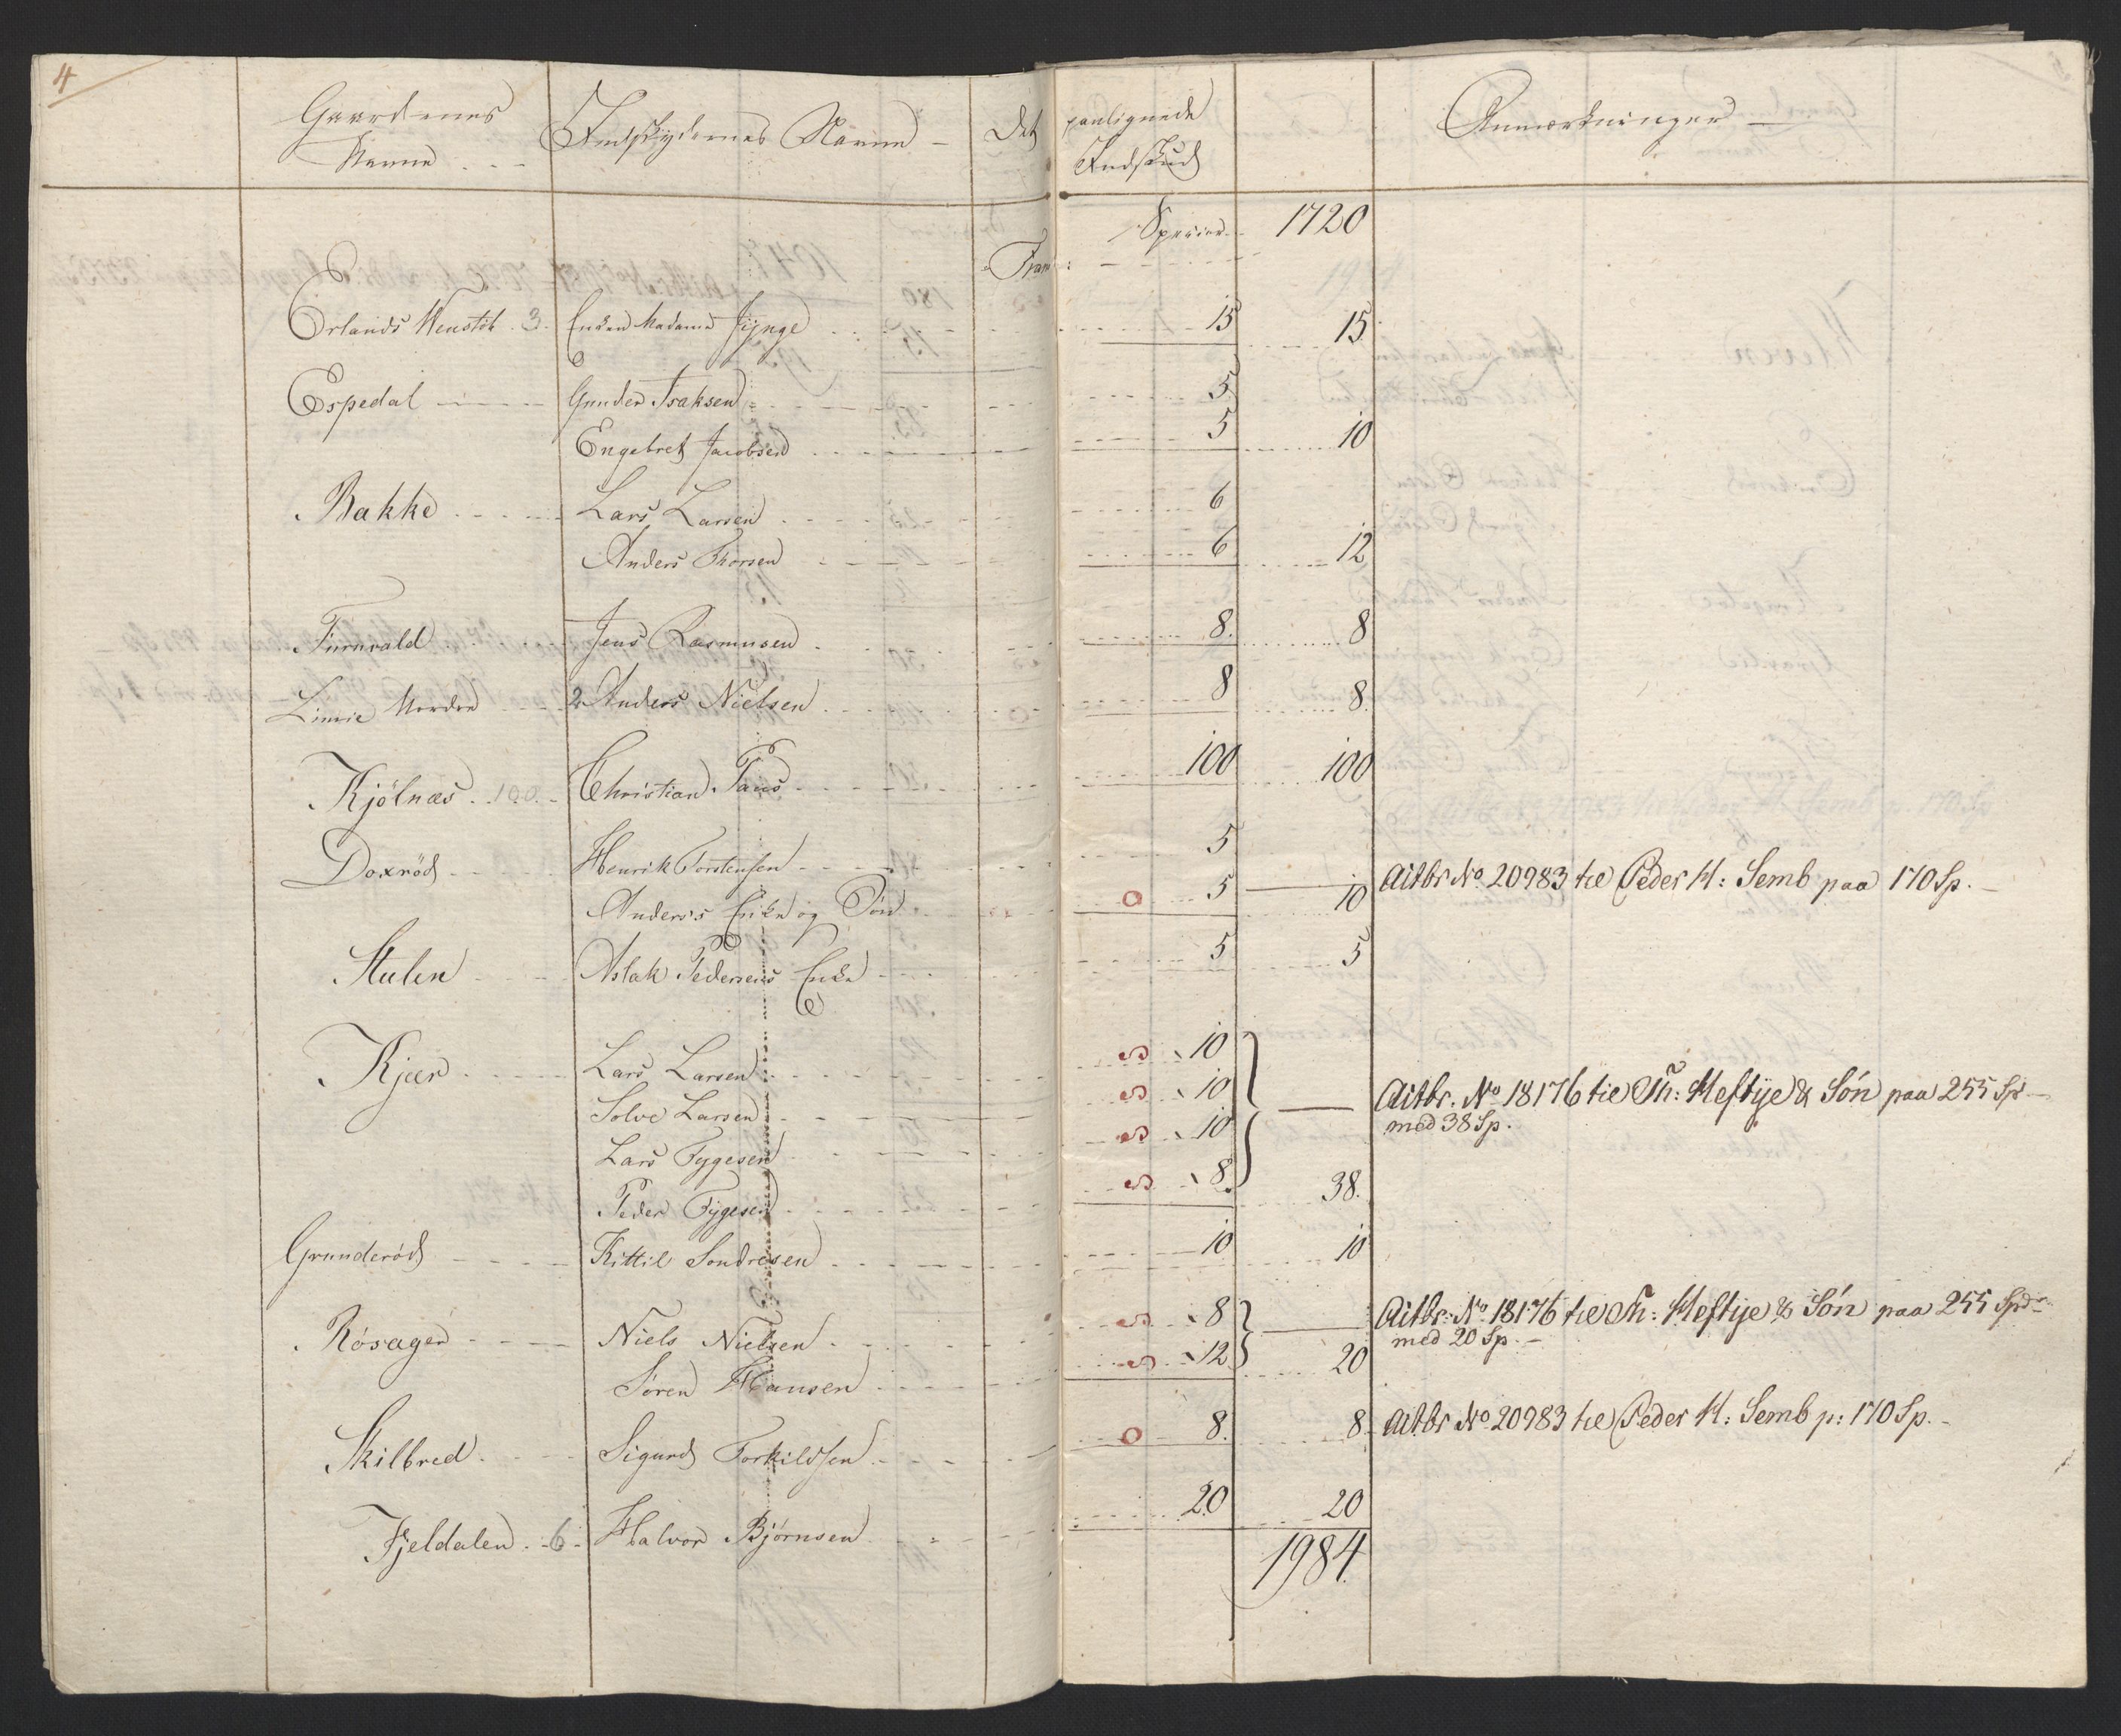 4
Gaardenes Navne
Indskydernes Navne
Det paalignede Indskud
Anmærkninger
Trans: Specier 1720
Örlands Wenstöb 3. Enken Madame Jÿnge 15 15
Espedal Gunder Isaksen 5
Engebret Jacobsen 5 10
Bakke Lars Larsen 6
Anders Thorsen 6 12
Furuvald Jens Rasmusen 8. 8
Limie Nordre 2 Anders Nielsen 8 8.
Kjölnæs 100 Christian Paus 100 100
Doxröd Henrik Torstensen 5
Anders's Enke og Sön o 5 10 Aitbr No 20983 til Peder H: Semb paa 170 Sp.
Stulen Aslak Pedersens Enke 5 5
Kjær Lars Larsen 10
Solve Larsen 10
Lars Tygesen 10 Aitbr. No 18176 til Th: Heftÿe & Sön paa 255 Sp
med 38 Sp.
Peder Tÿgesen 8. 38.
Grunderöd Kittil Sondresen 10 10
Rösager Niels Nielsen 8 Aitbr: No 18176 til Th: Heftÿe & Sön paa 255 Spd
med 20 Sp.
Sören Hansen 12 20
Skilbred Sigurd Torkildsen o 8. 8 Aitbr No 20983 til Peder H: Semb p: 170 Sp.
Fjeldalen 6 Halvor Björnsen 20 20
1984.